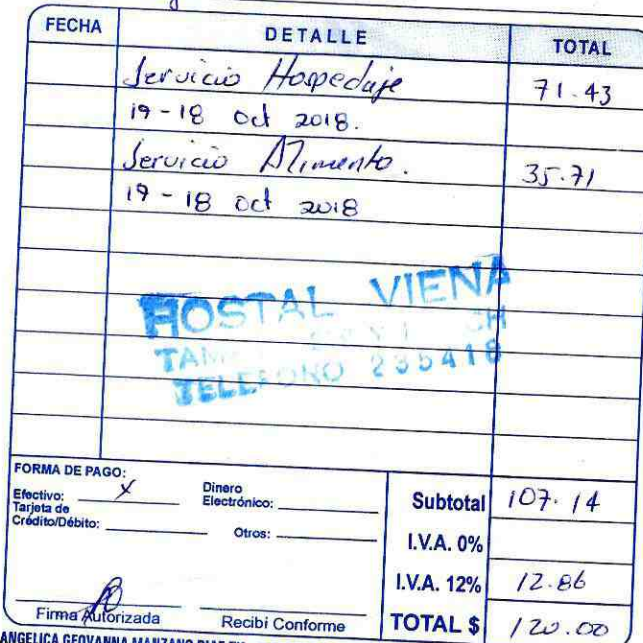 FECHA DETALLE TOTAL
Servicio Hospedaje 71.43
17-18 oct 2018.
Servicio Alimento. 35.71
17-18 oct 2018
HOSTAL VIENA
TELEFONO 235418
FORMA DE PAGO:
Efectivo: X Dinero Electrónico:
Tarjeta de Crédito/Débito: Otros:
Subtotal 107.14
I.V.A. 0%
I.V.A. 12% 12.86
Firma Autorizada Recibí Conforme TOTAL $ 120.00
ANGELICA GEOVANNA MANZANO DIAZ